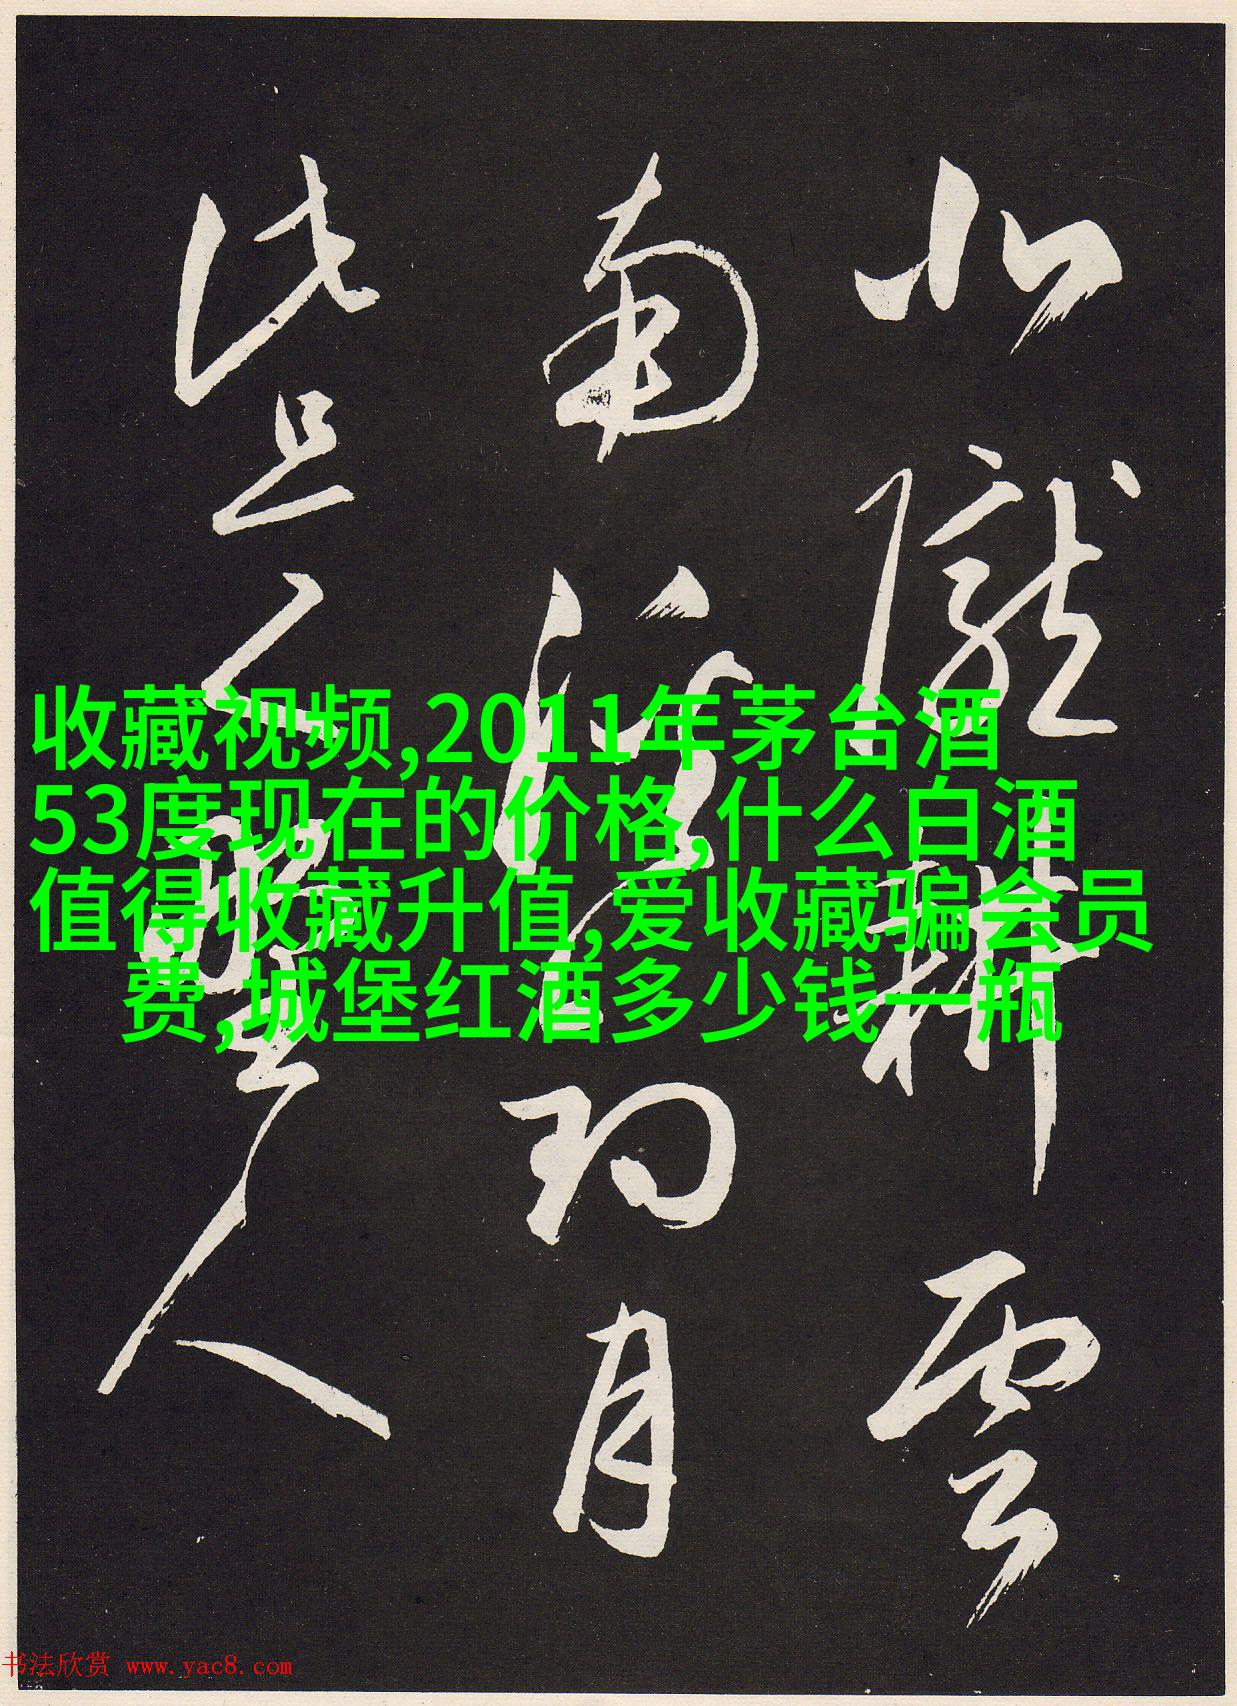 北隴耕雲
南溪釣月
此是人
收藏视频,2011年茅台酒
53度现在的价格,什么白酒
值得收藏升值,爱收藏骗会员
费,城堡红酒多少钱一瓶
书法欣赏 www.yac8.com